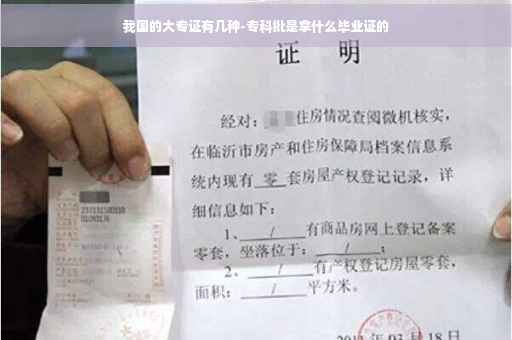 我国的大专证有几种-专科批是拿什么毕业证的
证 明
经对：住房情况查阅微机核实，
在临沂市房产和住房保障局档案信息系
统内现有 零 套房屋产权登记记录，详
细信息如下：
1、 / 有商品房网上登记备案
零套，坐落位于： / ；
2、 / 有产权登记房屋零套，
面积： / 平方米。